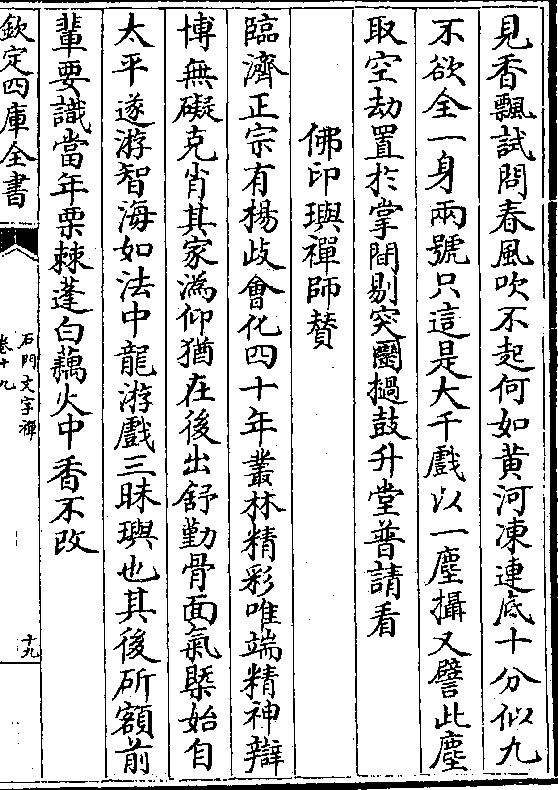 見香飄試問春風吹不起何如黄河凍連底十分似九
不欲全一身兩號只這是大千戲以一塵攝又譬此塵
取空劫置於掌間剔突圞撾鼓升堂普請看
佛印璵禪師賛
臨濟正宗有楊歧㑹化四十年叢林精彩唯端精神辯
博無礙克肖其家溈仰猶在後出舒勤骨面氣槩始自
太平遂游智海如法中龍游戲三昧璵也其後斫額前
輩要識當年栗棘蓬白藕火中香不改
欽定四庫全書
石門文字禪
卷十九
十九